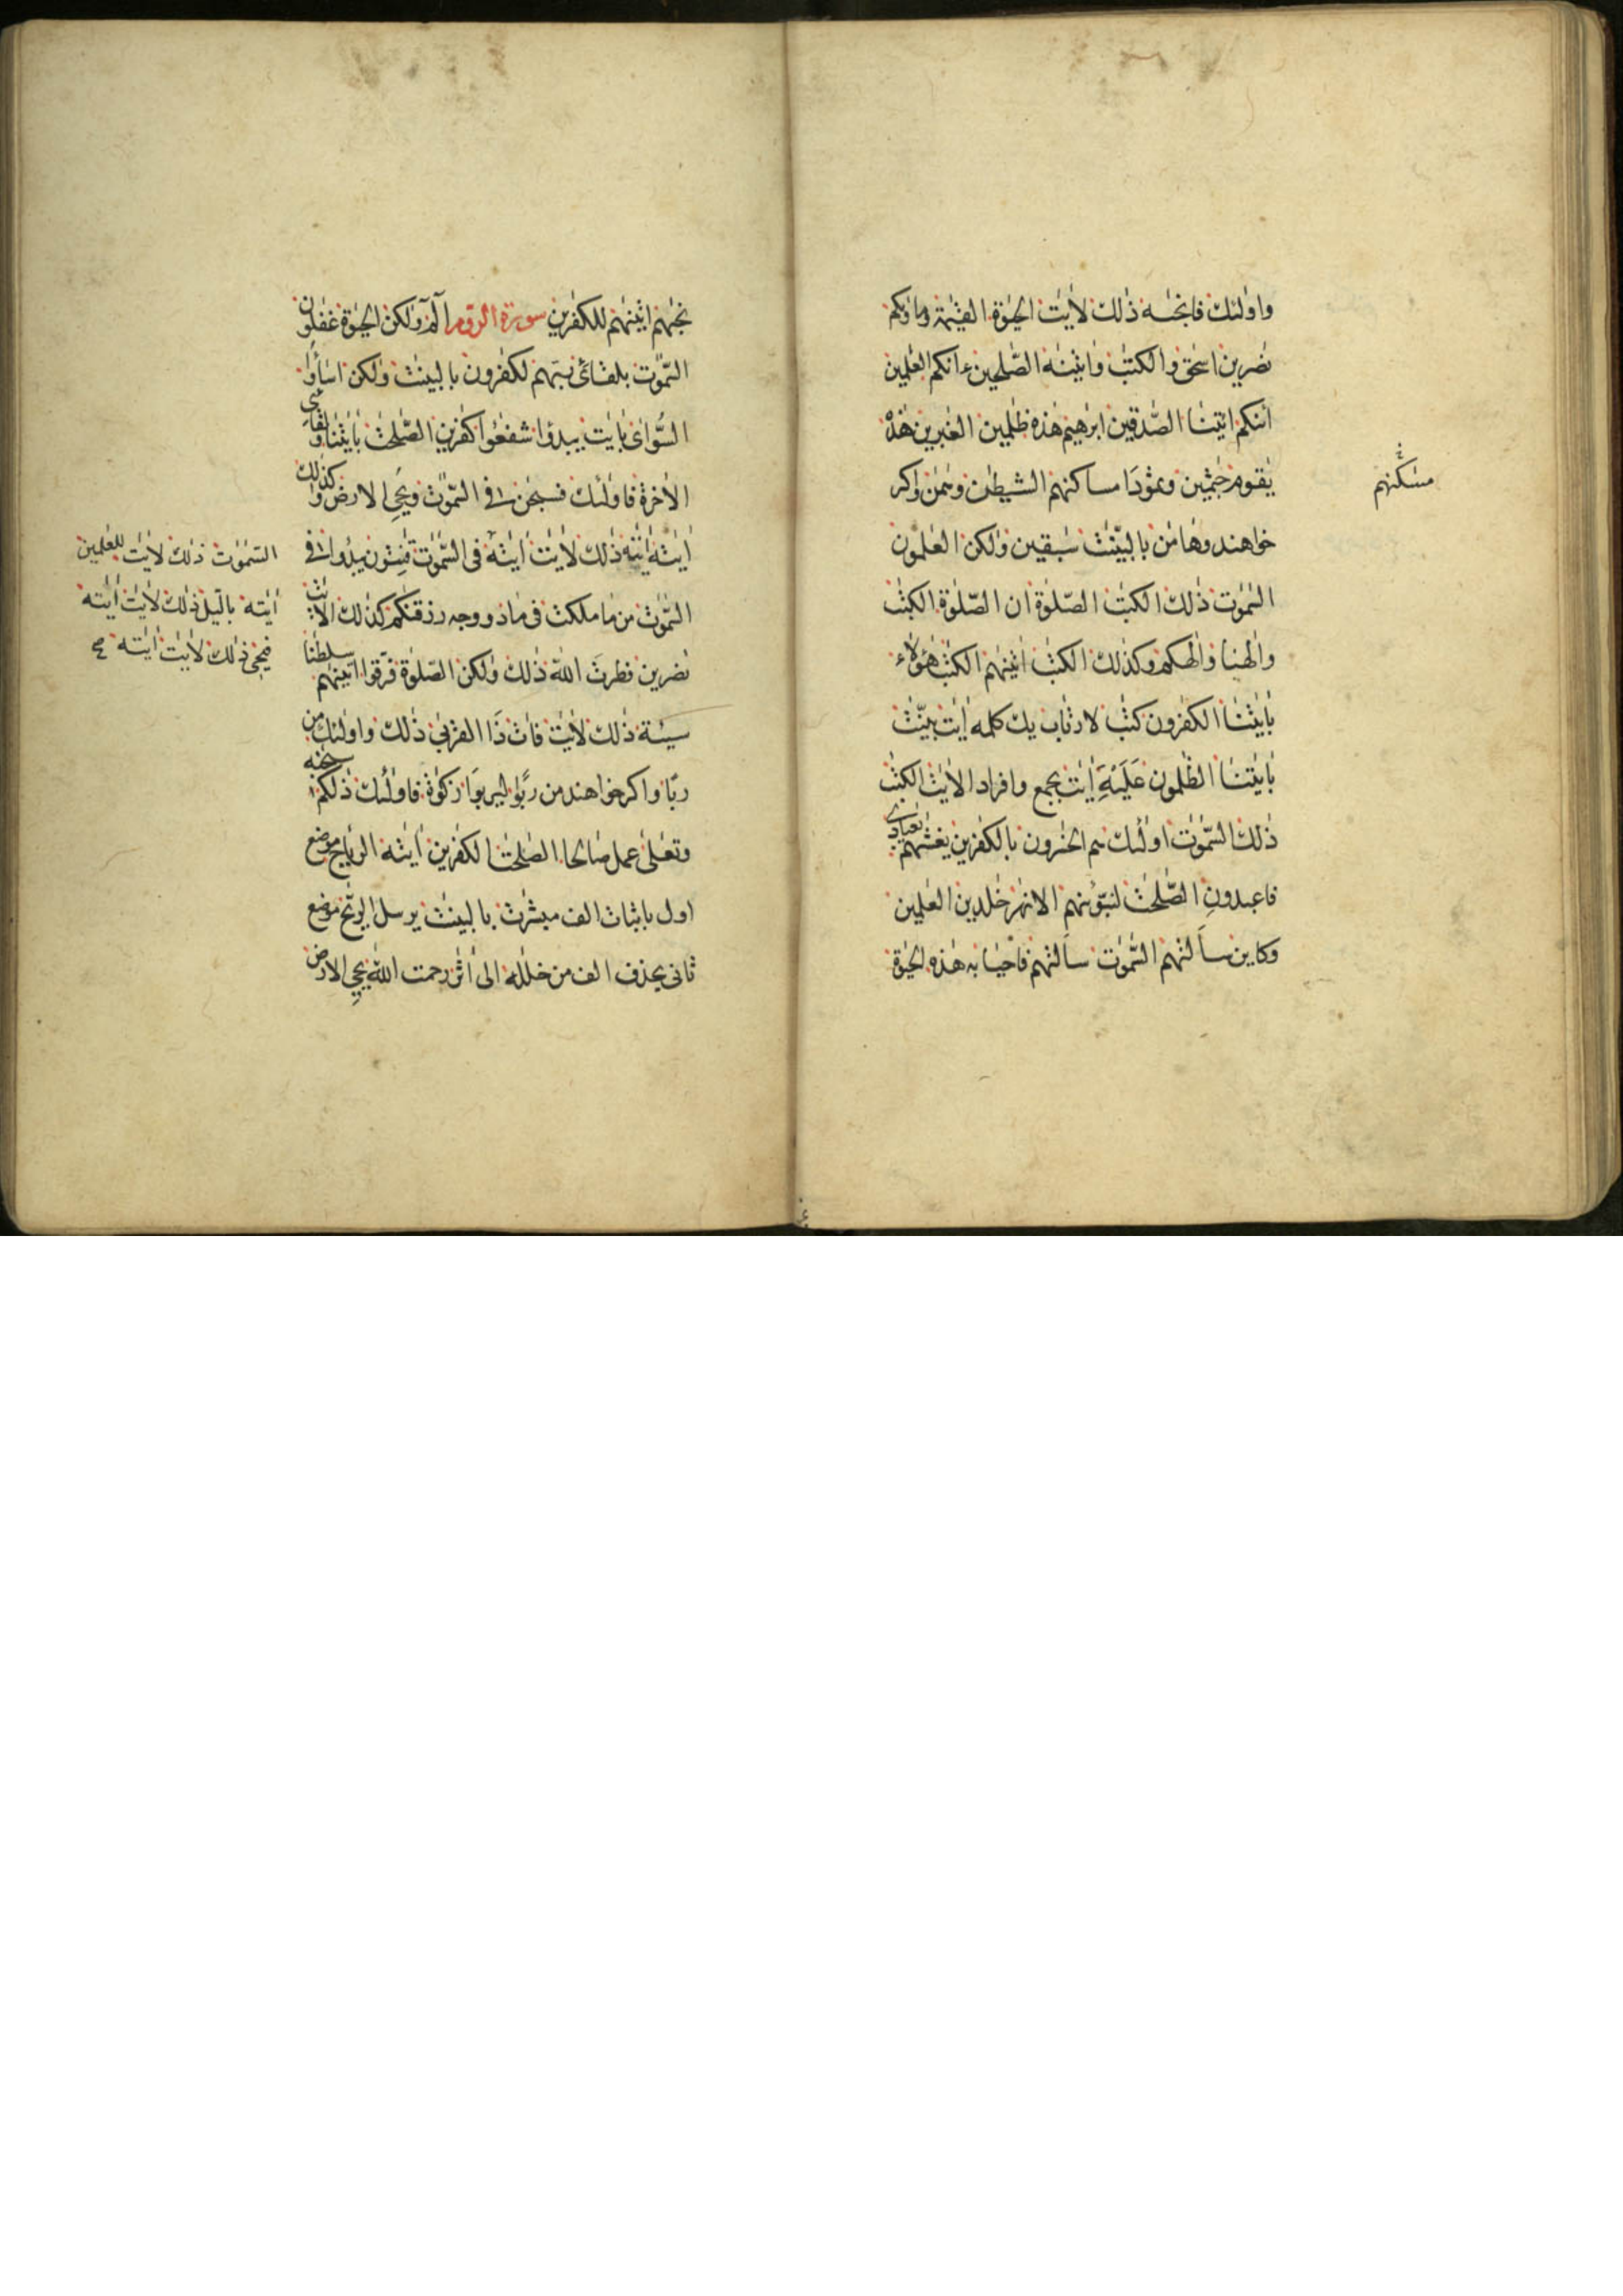 واولئك فانجىه ذلك لأيت الحيوة القيمة وماوٰىكم
نصرين اسحٰق والكتٰب واٰتينٰه الصّٰلحين ءانكم العٰلمين
ائنكم ائتنا الصّٰدقين ابرٰهيم هذه ظٰلمين الغٰبرين هذه
يٰقوم جٰثمين وثمودَا مساكنهم الشيطٰن وهٰمٰن واكر
خواهند وهامٰن بالبيّنٰت سٰبقين ولكن العٰلمون
السّمٰوٰت ذٰلك الكتٰب الصّلوٰة ان الصّلوٰة الكتٰب
والٰهنا والٰهكم وكذٰلك الكتٰب اٰتينٰهم الكتٰب هٰؤلاء
بأيٰتنا الكفٰرون كتٰب لارتاب يك كلمه اٰيٰت بيّنٰت
بأيٰتنا الظّٰلمون عَلَيْهِ اٰيٰت بجمع وافراد الأيٰت الكتٰب
ذٰلك السّمٰوٰت اولٰئك هم الخٰسرون بالكٰفرين يغشٰهم يٰعبادى
فاعبدونِ الصّٰلحٰت لنبوّئنهم الانهٰر خٰلدين العٰملين
وكاين سألتهم السّمٰوٰت سألتهم فاحيا به هٰذه الحيٰوة
مسٰكنهم
نجّٰهم اٰتينٰهم للكٰفرين سورة الرّوم الٓمٓ ولٰكن الحيٰوة غٰفلون
السّمٰوٰت بلقائ ربهم لكٰفرون بالبينٰت ولٰكن اسٰأوا
السّوأى بأيٰت يبدؤا شفعٰؤا كٰفرين الصّٰلحٰت بأيٰتنا ولقائ
الأخرة فاولٰئك فسبحٰن الله فى السّمٰوٰت ويحي الارض وكذٰلك
اٰيٰته اٰيٰته ذٰلك لأيٰت اٰيٰته فى السّمٰوٰت قٰنتون يبدؤا فى
السّمٰوٰت من ما ملكت فى ما ذووجه رزقنٰكم كذٰلك الأيٰت
نصرين فطرت الله ذٰلك ولٰكن الصّلوٰة فرّقوا اٰتينٰهم سلطٰنا
سيئة ذٰلك لأيٰت فاٰت ذَا القربى ذٰلك واولٰئك من
ربًا واكر خواهند من ربًوا ليربوَا زكوٰة فاولٰئك ذٰلكم سبحٰنه
وتعٰلى عمل صٰالحا الصّٰلحٰت الكٰفرين اٰيٰته الريٰاح موضع
اول باثبات الف مبشرٰت بالبينٰت يرسل الريٰح موضع
ثانى بحذف الف من خلٰله الى اٰثٰر رحمت الله يحي الارض
السّمٰوٰت ذٰلك لأيٰت للعٰلمين
اٰيٰته بالّيل ذٰلك لأيٰت اٰيٰته
فيحي ذٰلك لأيٰت اٰيٰته صح